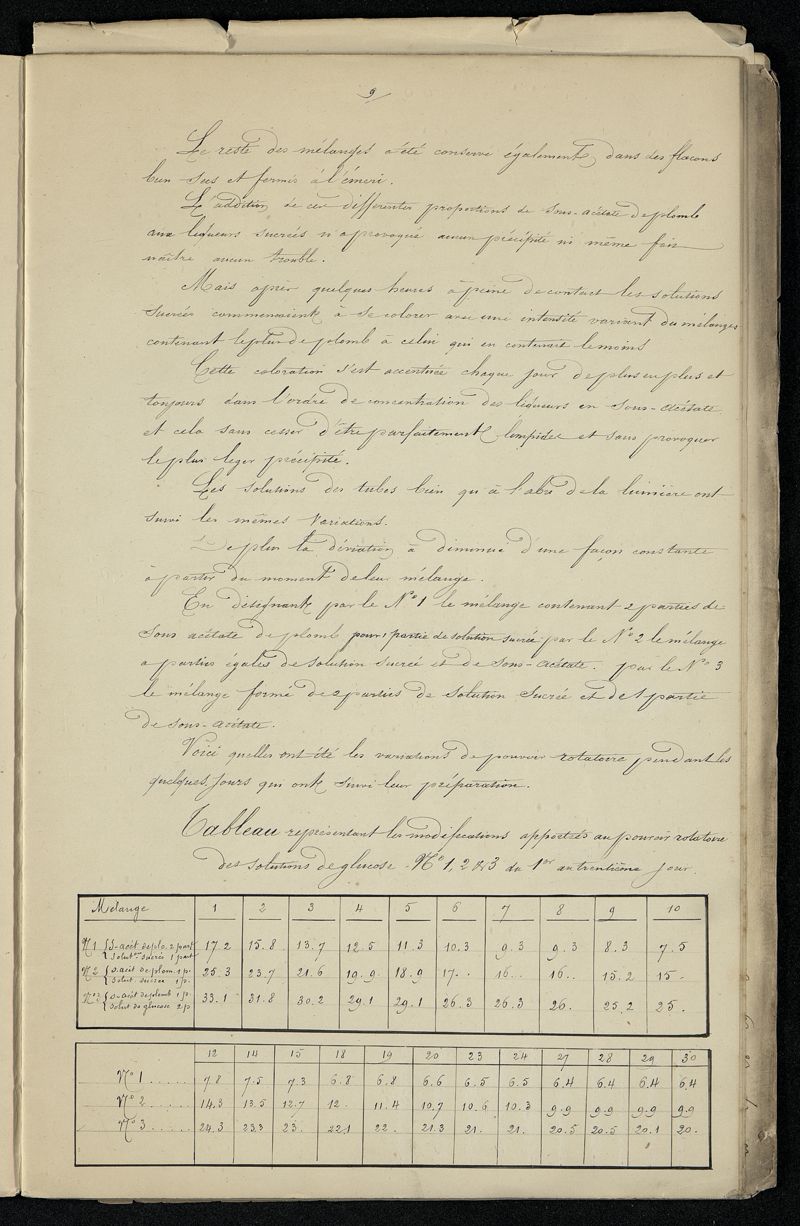 9
Le reste des mélanges a été conservé également, dans des flacons
bien secs et fermés à l'émeri.
L'addition de ces différentes proportions de sous-acétate de plomb
aux liqueurs sucrées n'a provoqué aucun précipité ni même fait
naître aucun trouble.
Mais après quelques heures à peine de contact les solutions
sucrées commencaient à se colorer avec une intensité variant du mélanges
contenant le plus de plomb à celui qui en contenait le moins
Cette coloration s'est accentuée chaque jour de plus en plus et
toujours dans l'ordre de concentration des liqueurs en sous-acétate
et cela sans cesser d'être parfaitement limpides et sans provoquer
le plus leger précipité.
Les solutions des tubes bien qu'à l'abri de la lumière ont
suivi les mêmes variations.
De plus la déviation à diminué d'une façon constante
à partir du moment de leur mélange.
En désignant par le Nº 1 le mélange contenant 2 parties de
sous acétate de plomb pour 1 partie de solution sucrée par le Nº 2 le mélange
a parties égales de solution sucrée et de sous-acétate. par le Nº 3
le mélange formé de 2 parties de solution sucrée et de 1 partie
de sous-acétate.
Voici quelles ont été les variations de pouvoir rotatoire pendant les
quelques jours qui ont suivi leur préparation.
Tableau représentant les modifications apportées au pouvoir rotatoire
des solutions de glucose Nº 1, 2 et 3 du 1er au trentième jour.
Mélange 1 2 3 4 5 6 7 8 9 10
Nº 1 { S-acét de plo. 2 part 17.2 15.8 13.7 12.5 11.3 10.3 9.3 9.3 8.3 7.5
{ Solut.on sucrée 1 part
Nº 2 { S-acét de plom. 1 p. 25.3 23.7 21.6 19.9 18.9 17.. 16.. 16.. 15.2 15.
{ Solut sucrée 1 p.
Nº 3 { S-acét de plomb 1 p. 33.1 31.8 30.2 29.1 29.1 26.3 26.3 26. 25.2 25.
{ Solut de glucose 2 p
12 14 15 18 19 20 23 24 27 28 29 30
Nº 1 ...... 7.8 7.5 7.3 6.8 6.8 6.6 6.5 6.5 6.4 6.4 6.4 6.4
Nº 2 ...... 14.3 13.5 12.7 12. 11.4 10.7 10.6 10.3 9.9 9.9 9.9 9.9
Nº 3 ...... 24.3 23.3 23. 22.1 22. 21.3 21. 21. 20.5 20.5 20.1 20.